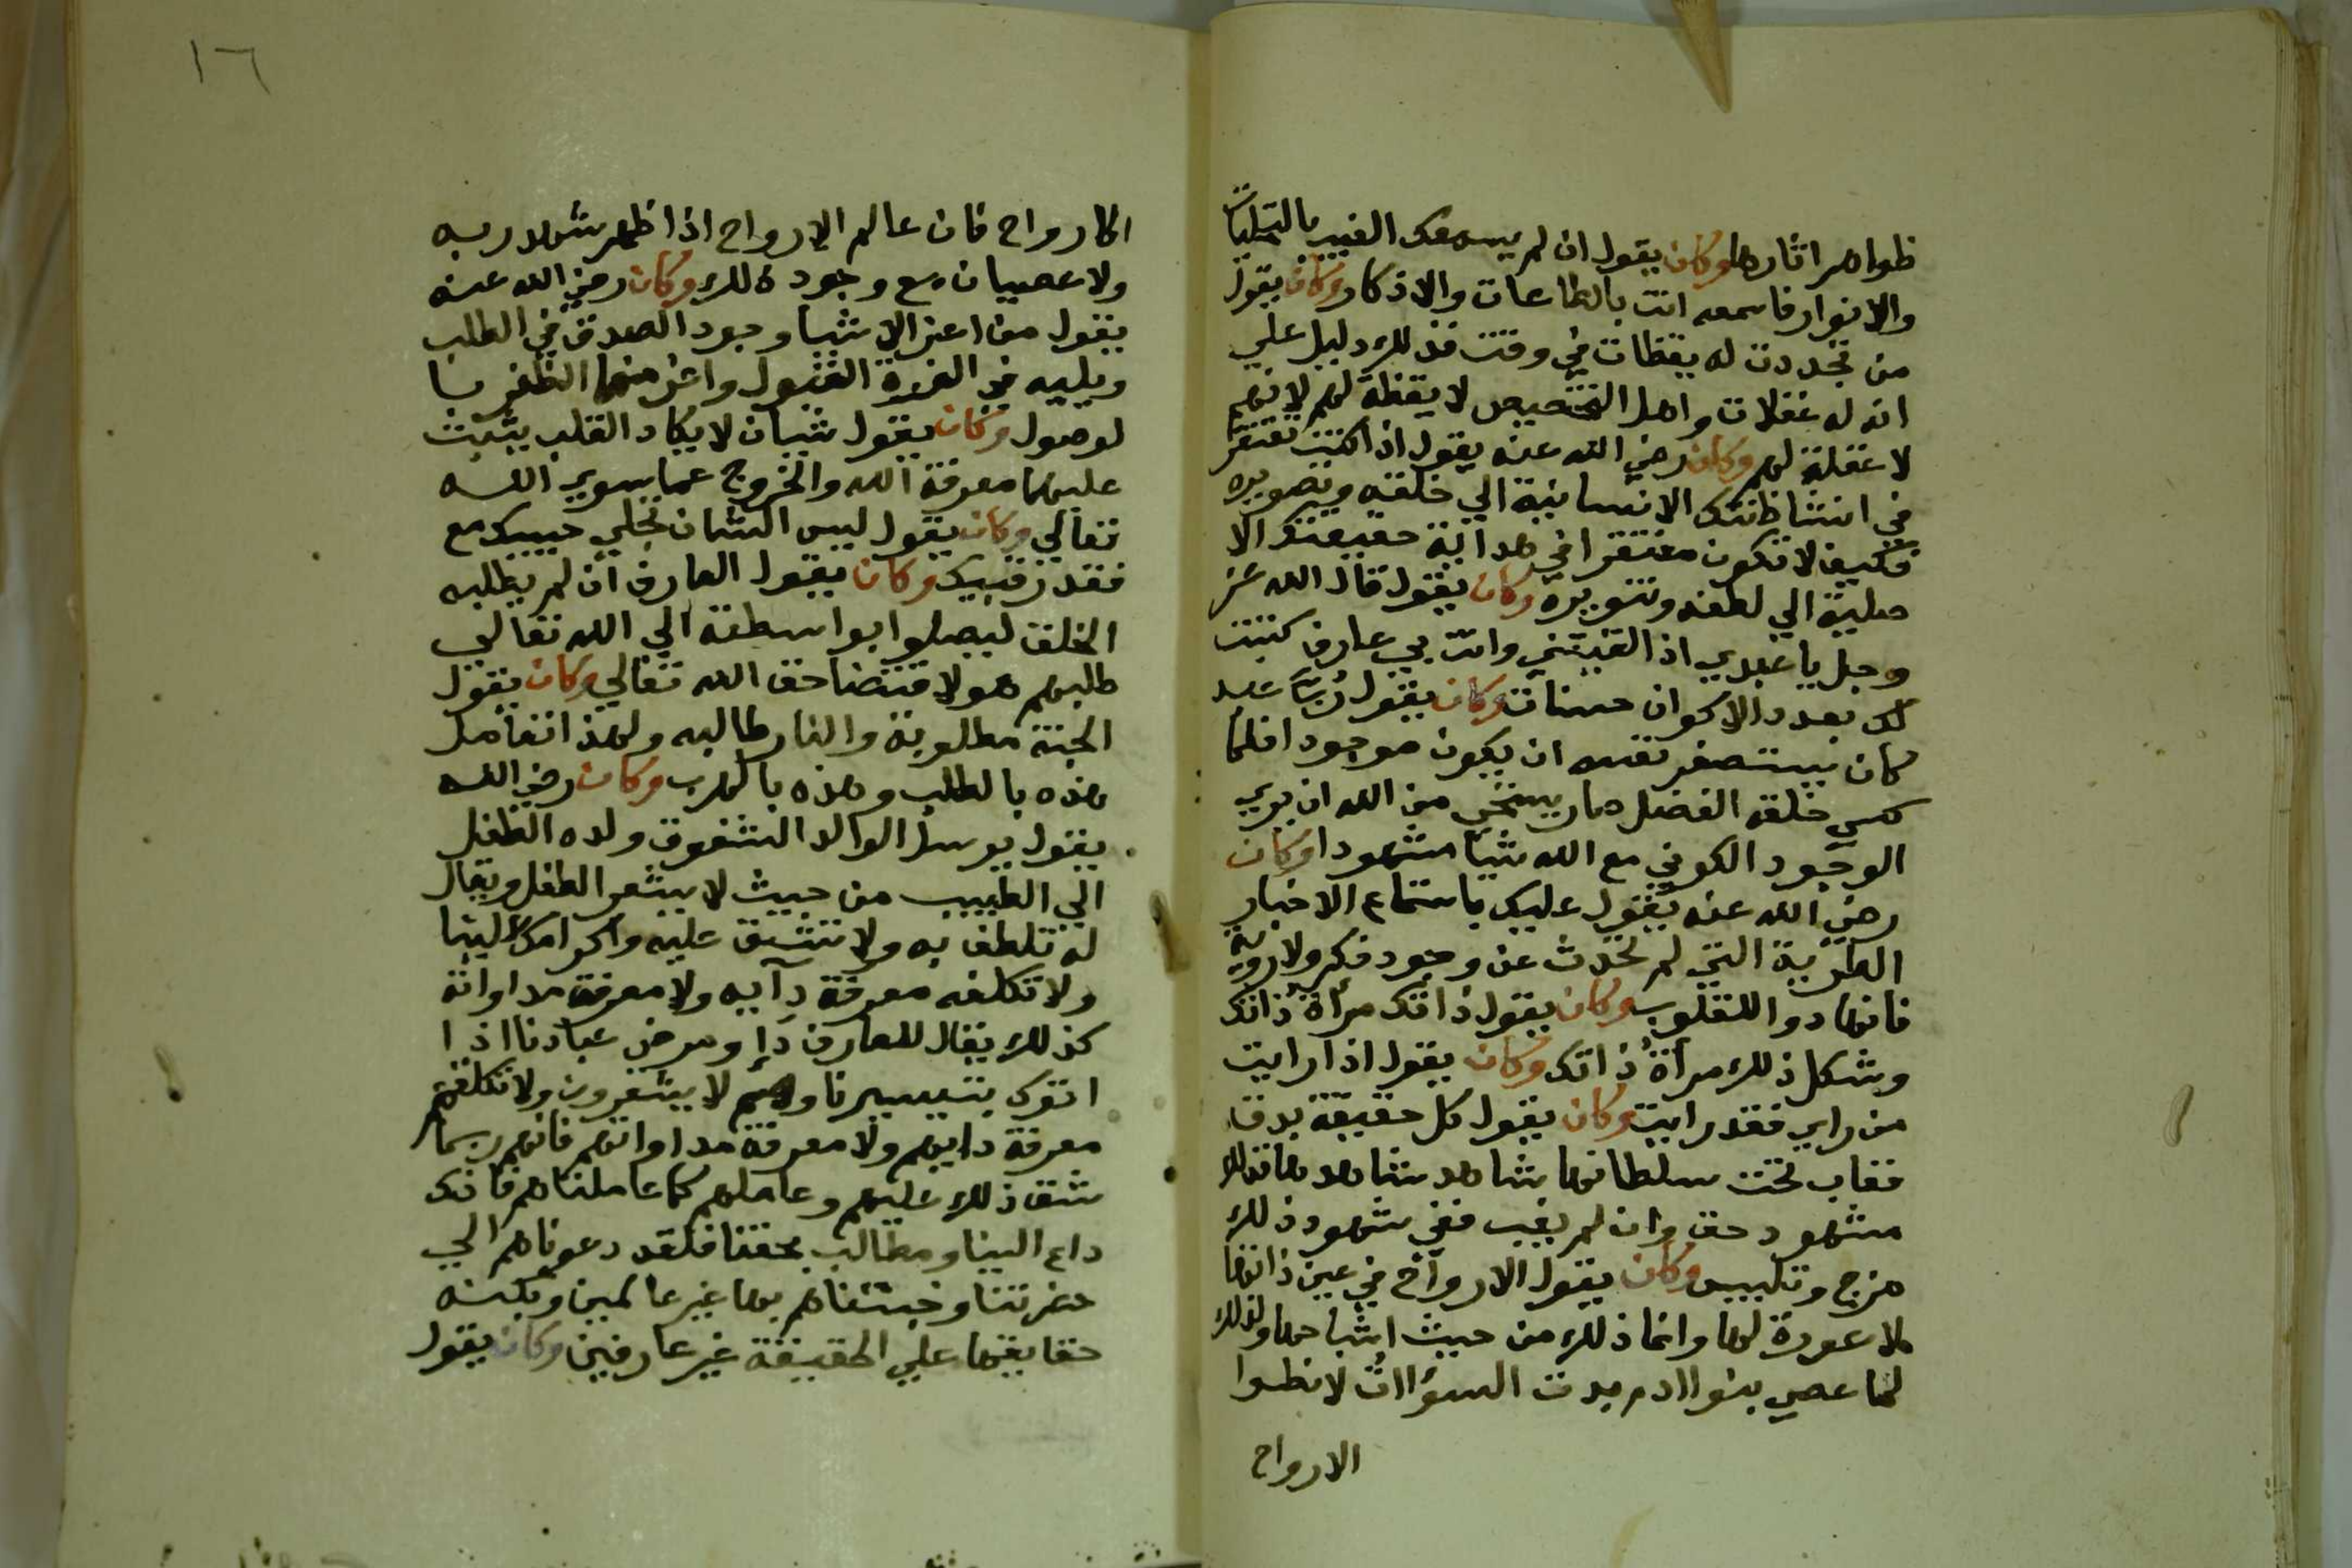 ظواهر اثارها وكان يقول ان لم يسمعك الغيب بالتجليات
والانوار فاسمعه انت بالطاعات والاذكار وكان يقول
من تجددت له يقظات في وقت فذلك دليل علي
انه له غفلات واهل التخصيص لا يقظة لهم لانهم
لا غفلة لهم وكان رضي الله عنه يقول اذا كنت تفتقر
في انشا ظنتك الانسانية الي خلقه وتصويره
فكيف لا تكون مفتقرا في هداية حقيقتك الا
صلية الي لطفه وتنويره وكان يقول قال الله عز
وجل يا عبدي اذا لقيتني وانت بي عارف كتبت
لك بعدد الاكوان حسنات وكان يقول رب عبد
كان يستصغر نفسه ان يكون موجودا فلما
كسي خلقة الفضل صار يستحي من الله ان يري
الوجود الكوني مع الله شيا مشهودا وكان
رضي الله عنه يقول عليك باستماع الاخبار
الطرية التي لم تحدث عن وجود فكر ولا روية
فانها دوا للقلوب وكان يقول ذاتك مرآة ذاتك
وشكل ذلك مرآة ذاتك وكان يقول اذا رايت
من راي فقد رايت وكان يقول كل حقيقة بدت
فغاب تحت سلطانها شاهد شاهدها فذلك
مشهود حق وان لم يغب ففي شهود ذلك
مزج وتلبيس وكان يقول الارواح في عين ذاتها
لا عورة لها وانما ذلك من حيث اشباحها ولذلك
لما عصي بنوا ادم بدت السؤات لانطوا
الارواح
١٦
الارواح فان عالم الارواح اذا ظهر شهد ربه
ولا عصيان مع وجود ذلك وكان رضي الله عنه
يقول من اعز الاشيا وجود الصدق في الطلب
ويليه في العزة القبول واعز منهما الظفر با
لوصول وكان يقول شيان لا يكاد القلب يثبت
عليهما معرفة الله والخروج عما سوي الله
تعالي وكان يقول ليس الشان تجلي حبيبك مع
فقد رقيبك وكان يقول العارف ان لم يطلبه
الخلق ليصلوا بواسطته الي الله تعالي
طلبهم هو لاقتضا حق الله تعالي وكان يقول
الجنة مطلوبة والنار طالبه ولهذا تعامل
هذه بالطلب وهذه بالهرب وكان رضي الله
يقول يرسل الوالد الشفوق ولده الطفل
الي الطبيب من حيث لا يشعر الطفل ويقال
له تلطف به ولا تشق عليه واكرامك الينا
ولا تكلفه معرفة دآيه ولا معرفة مداواته
كذلك يقال للعارف دإ ومرض عبادنا اذا
اتوك بتيسيرنا وهم لا يشعرون ولا تكلفهم
معرفة دايهم ولا معرفة مداواتهم فانهم ربما
شق ذلك عليهم وعاملهم كما عاملناهم فانك
داع الينا ومطالب بحقنا فلقد دعوناهم الي
حضرتنا وجبتناهم بها غير عالمين وبكنه
حقايقها علي الحقيقة غير عارفين وكان يقول